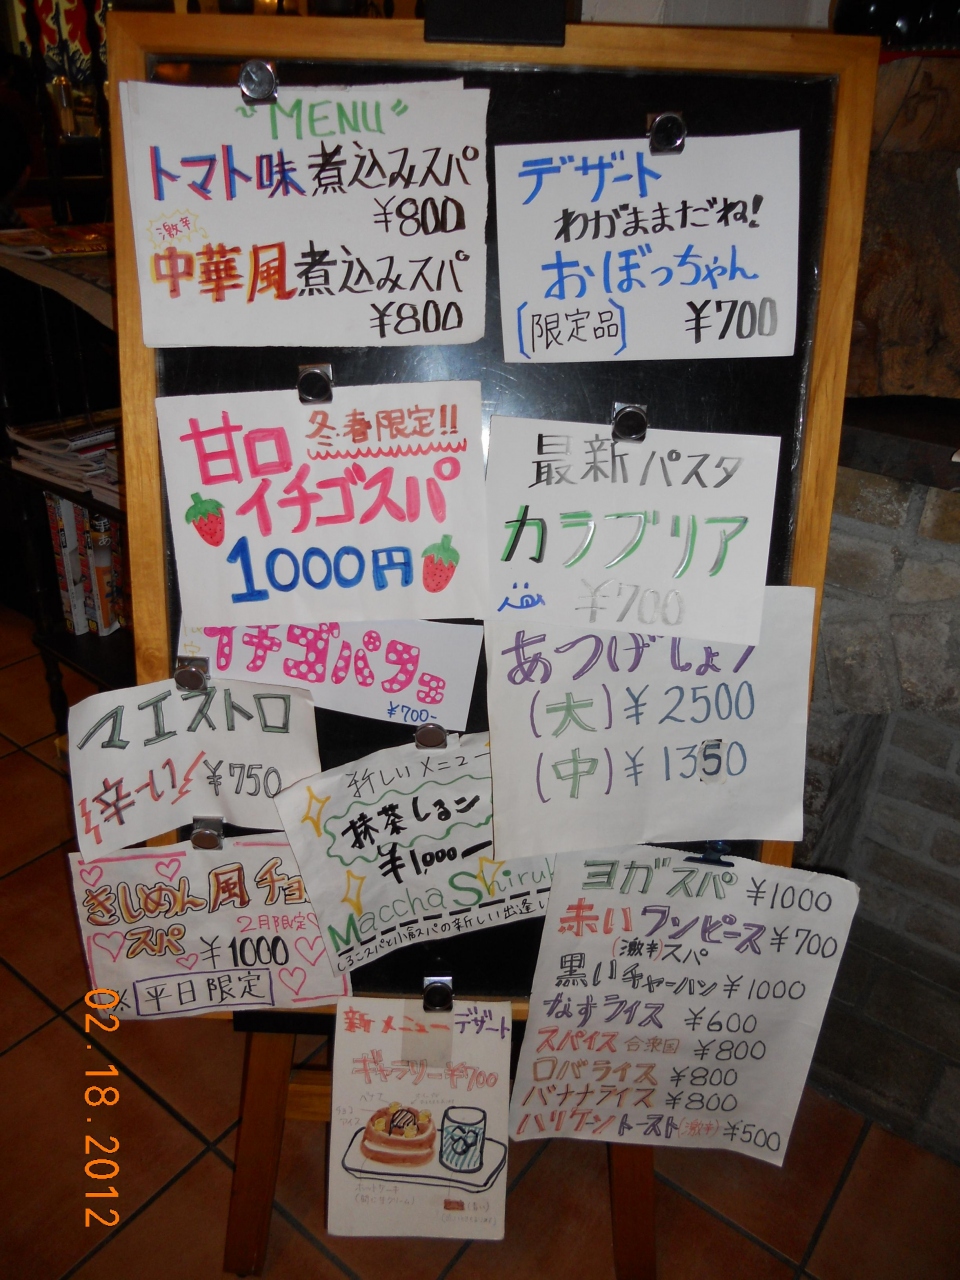 "MENU"
トマト味煮込みスパ
¥800
激辛
中華風煮込みスパ
¥800
デザート
わがままだね!
おぼっちゃん
[限定品] ¥700
冬春限定!!
甘口
イチゴスパ
1000円
最新パスタ
カラブリア
¥700
イチゴパフェ
¥700-
あつげしょう
(大) ¥2500
(中) ¥1350
マエストロ
辛ーい ¥750
新しいメニュー
抹茶しるこ
¥1,000ー
Maccha Shiruk
しるこスパと小倉スパの新しい出逢い
きしめん風チョ
2月限定
スパ ¥1000
※平日限定
ヨガスパ ¥1000
赤いワンピース ¥700
(激辛)スパ
黒いチャーハン ¥1000
なすライス ¥600
スパイス合衆国 ¥800
ロバライス ¥800
バナナライス ¥800
ハリケーントースト(激辛) ¥500
新メニューデザート
ギャラリー¥700
ホットケーキ
02.18.2012